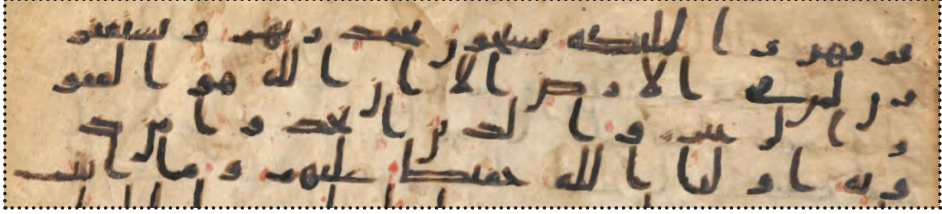 من فوقهن و الملئكه يسبحون بحمد ربهم و يستغفر
ون لمن في الارض الا ان الله هو الغفو
ر الرحيم و الذين اتخذوا من د
ونه اوليا الله حفيظ عليهم و ما انت